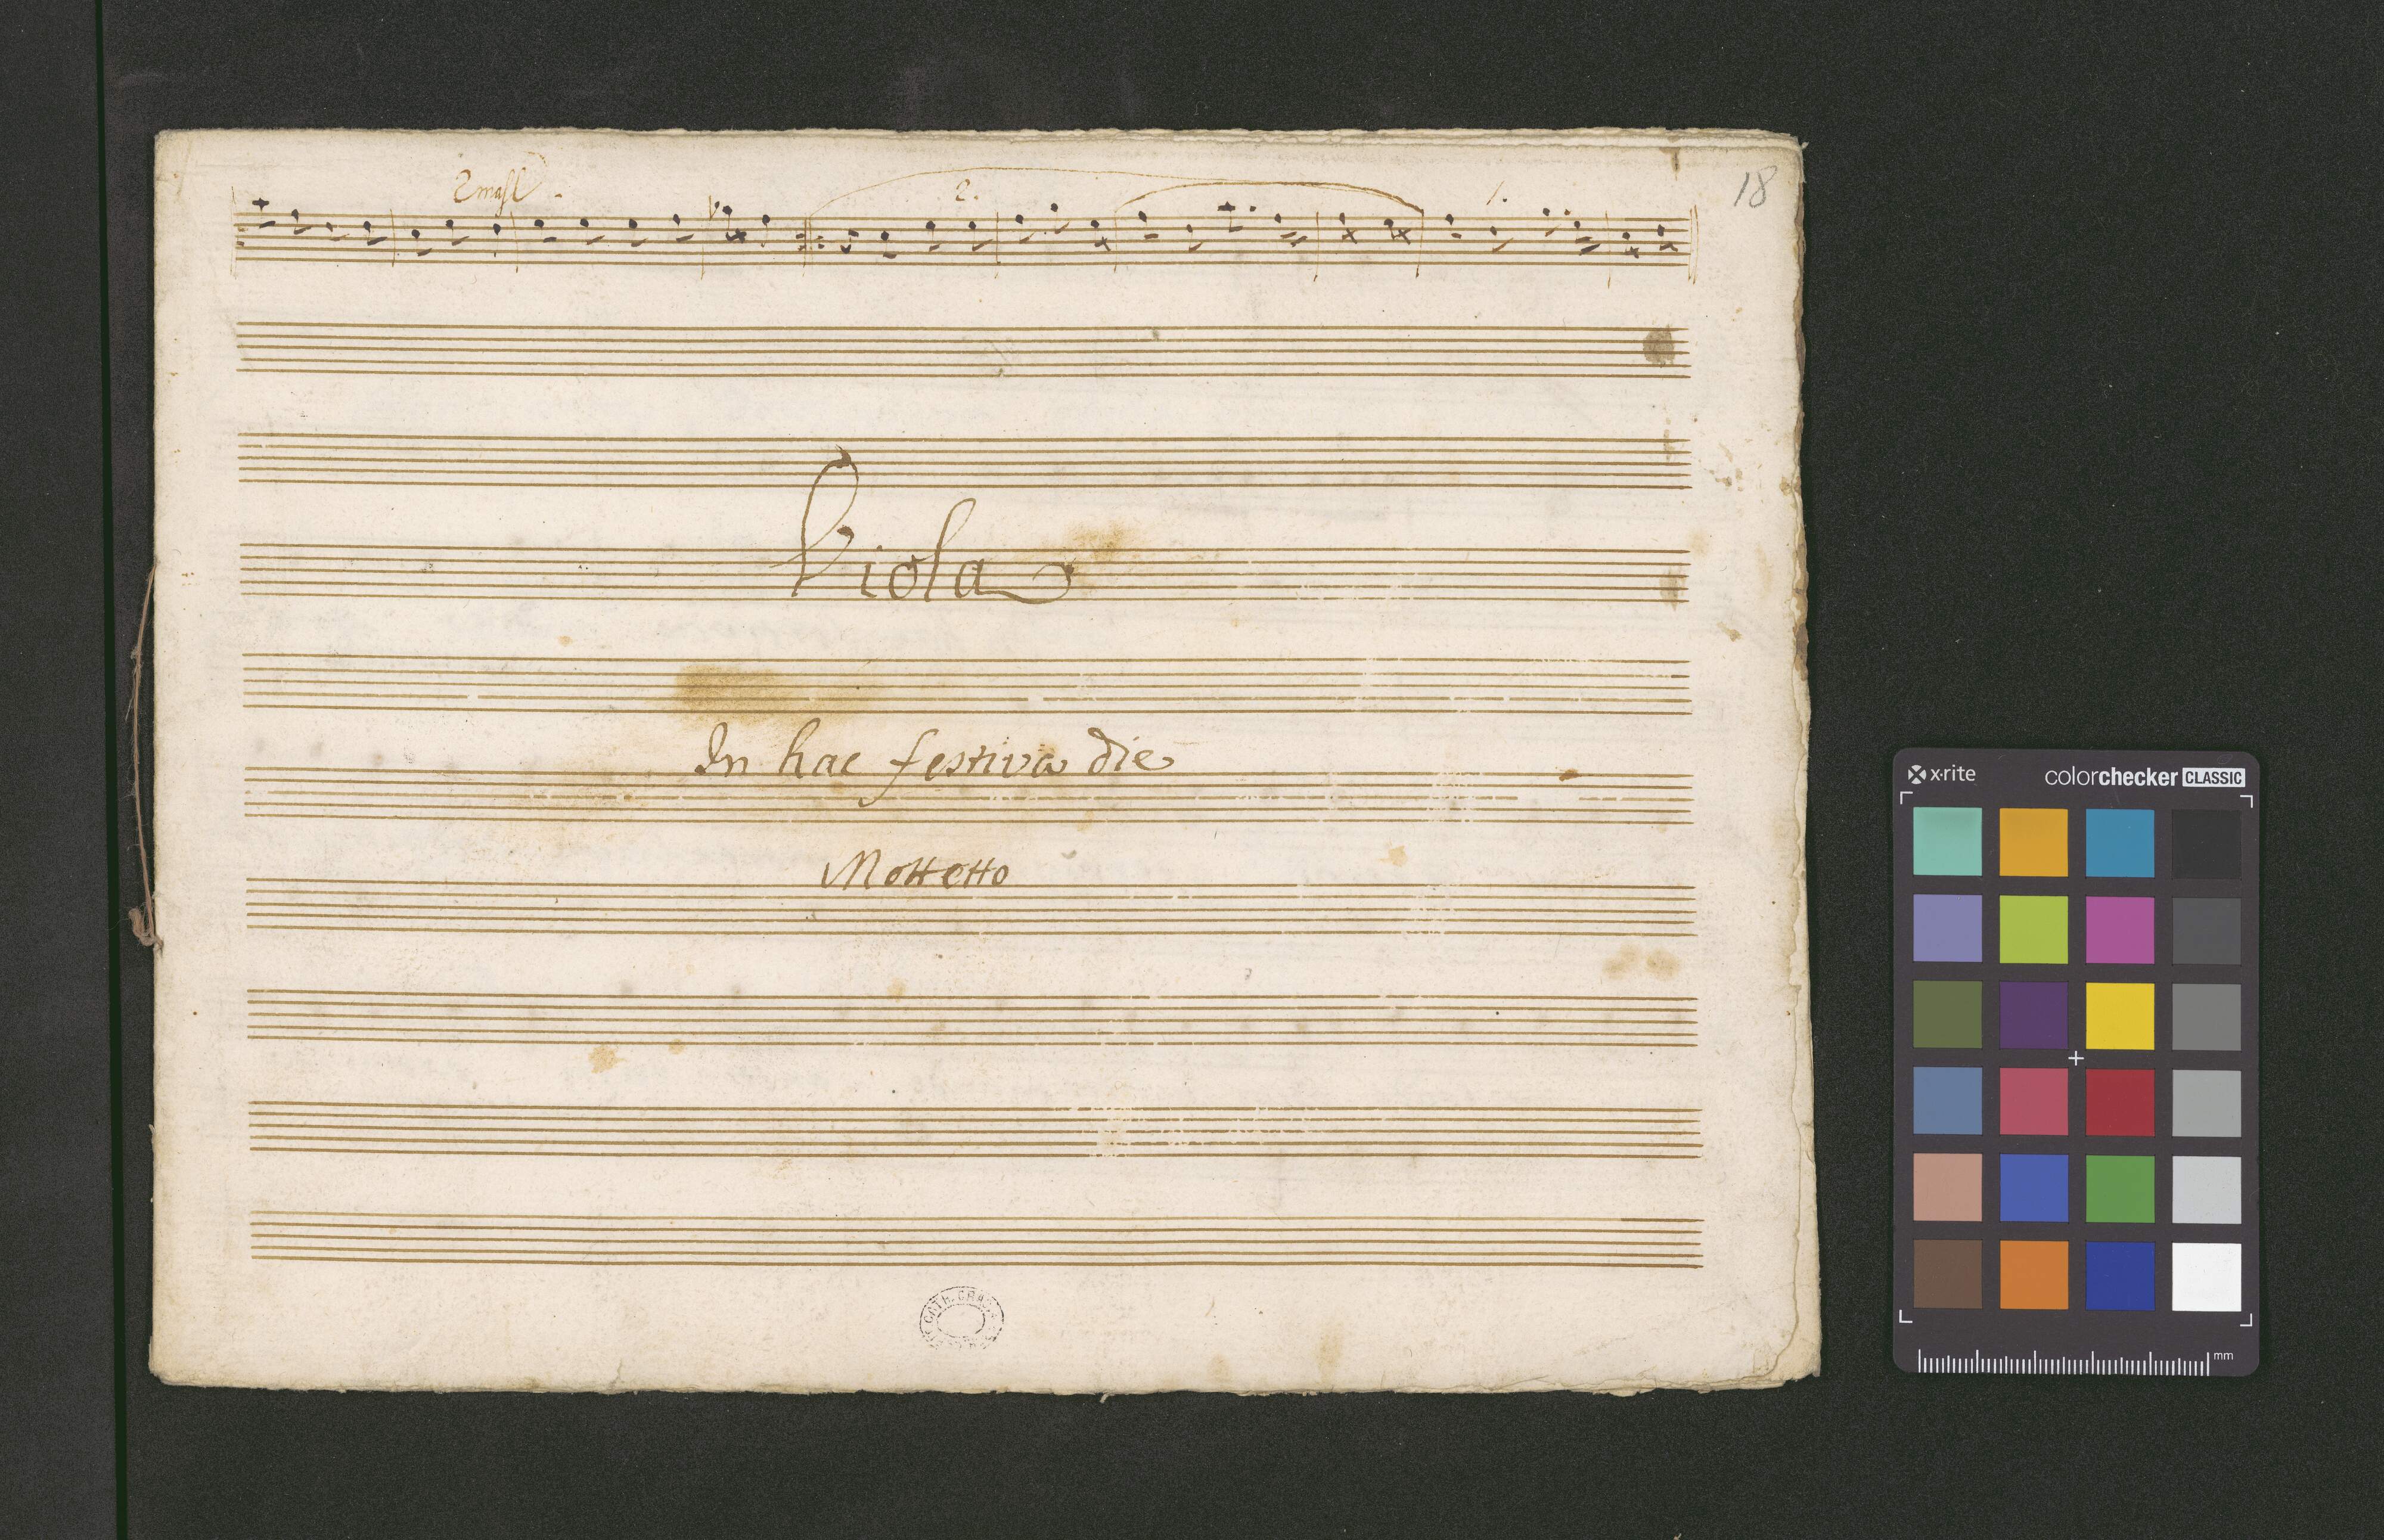 2mahl
2.
1.
18
Viola
In hac festiva die
Mottetto
x-rite
colorchecker CLASSIC
mm